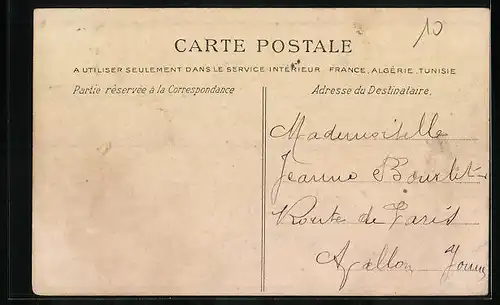 10
CARTE POSTALE
A UTILISER SEULEMENT DANS LE SERVICE INTÉRIEUR FRANCE, ALGÉRIE, TUNISIE
Partie réservée à la Correspondance
Adresse du Destinataire.
Mademoiselle
Jeanne
Route de Paris
Avallon Yonne